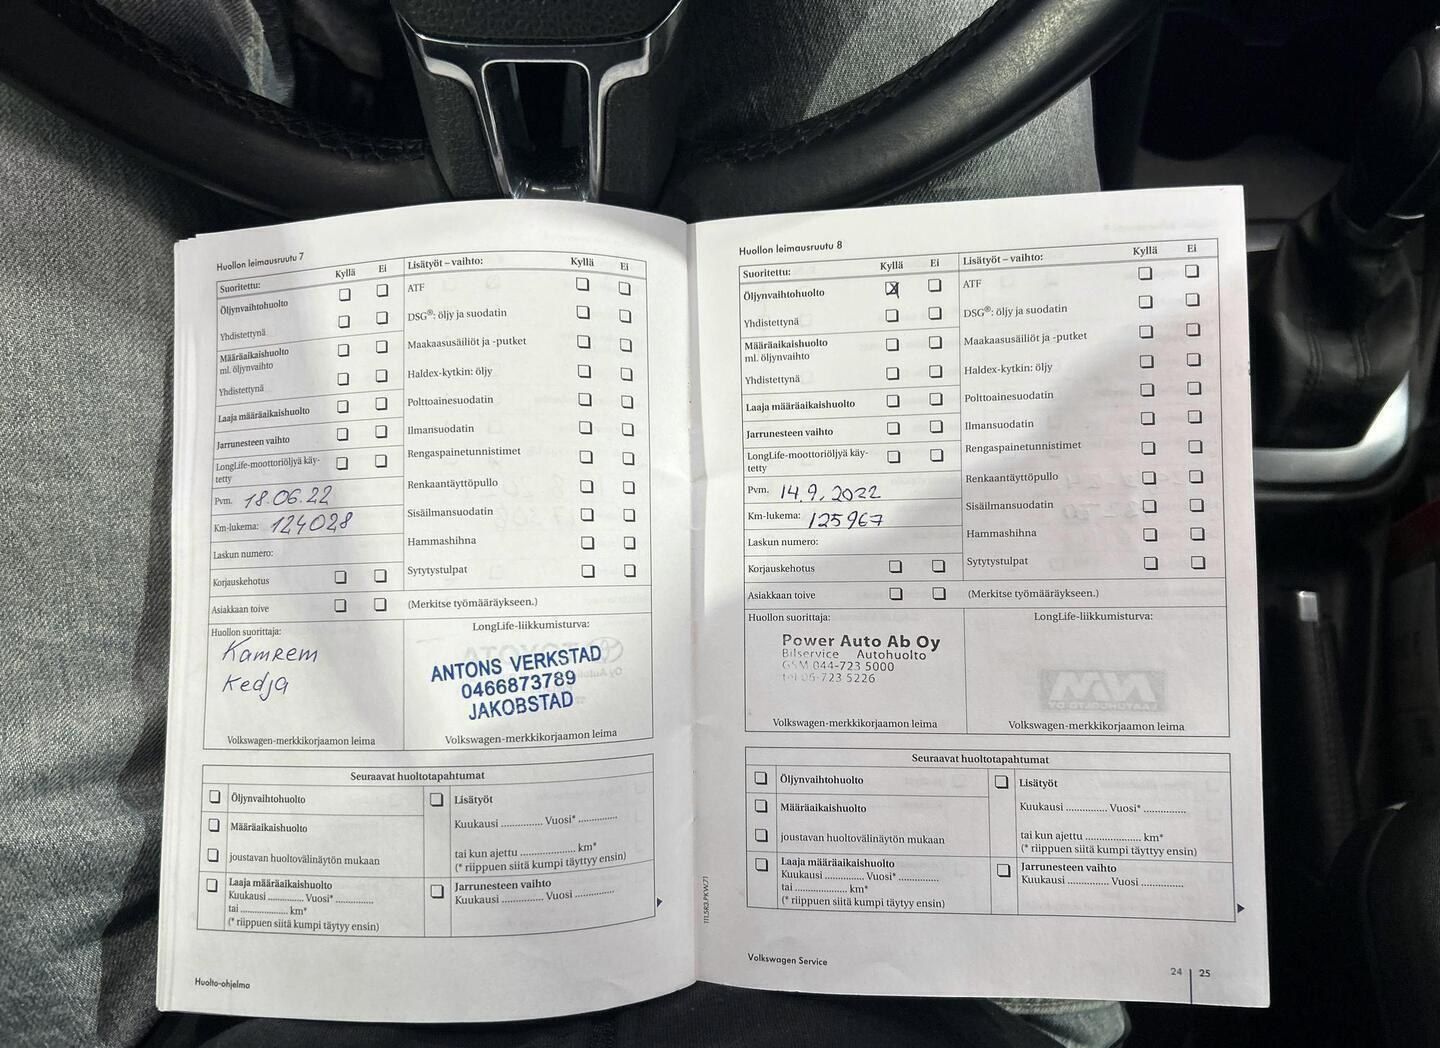 Huollon leimausruutu 7
Suoritettu: Kyllä Ei
Öljynvaihtohuolto
Yhdistettynä
Määräaikaishuolto
ml. öljynvaihto
Yhdistettynä
Laaja määräaikaishuolto
Jarrunesteen vaihto
LongLife-moottoriöljyä käy-
tetty
Pvm. 18.06.22
Km-lukema: 124028
Laskun numero:
Korjauskehotus
Asiakkaan toive
Lisätyöt – vaihto: Kyllä Ei
ATF
DSG®: öljy ja suodatin
Maakaasusäiliöt ja -putket
Haldex-kytkin: öljy
Polttoainesuodatin
Ilmansuodatin
Rengaspainetunnistimet
Renkaantäyttöpullo
Sisäilmansuodatin
Hammashihna
Sytytystulpat
(Merkitse työmääräykseen.)
Huollon suorittaja:
Kamrem
Kedja
Volkswagen-merkkikorjaamon leima
LongLife-liikkumisturva:
ANTONS VERKSTAD
0466873789
JAKOBSTAD
Volkswagen-merkkikorjaamon leima
Seuraavat huoltotapahtumat
Öljynvaihtohuolto
Määräaikaishuolto
joustavan huoltovälinäytön mukaan
Laaja määräaikaishuolto
Kuukausi .............. Vuosi* ..............
tai .................... km*
(* riippuen siitä kumpi täytyy ensin)
Lisätyöt
Kuukausi .............. Vuosi* ..............
tai kun ajettu .................... km*
(* riippuen siitä kumpi täyttyy ensin)
Jarrunesteen vaihto
Kuukausi .............. Vuosi ..............
Huolto-ohjelma
Huollon leimausruutu 8
Suoritettu: Kyllä Ei
Öljynvaihtohuolto
Yhdistettynä
Määräaikaishuolto
ml. öljynvaihto
Yhdistettynä
Laaja määräaikaishuolto
Jarrunesteen vaihto
LongLife-moottoriöljyä käy-
tetty
Pvm. 14.9.2022
Km-lukema: 125967
Laskun numero:
Korjauskehotus
Asiakkaan toive
Lisätyöt – vaihto: Kyllä Ei
ATF
DSG®: öljy ja suodatin
Maakaasusäiliöt ja -putket
Haldex-kytkin: öljy
Polttoainesuodatin
Ilmansuodatin
Rengaspainetunnistimet
Renkaantäyttöpullo
Sisäilmansuodatin
Hammashihna
Sytytystulpat
(Merkitse työmääräykseen.)
Huollon suorittaja:
Power Auto Ab Oy
Bilservice Autohuolto
GSM 044-723 5000
tel 06-723 5226
Volkswagen-merkkikorjaamon leima
LongLife-liikkumisturva:
Volkswagen-merkkikorjaamon leima
Seuraavat huoltotapahtumat
Öljynvaihtohuolto
Määräaikaishuolto
joustavan huoltovälinäytön mukaan
Laaja määräaikaishuolto
Kuukausi .............. Vuosi* ..............
tai .................... km*
(* riippuen siitä kumpi täytyy ensin)
Lisätyöt
Kuukausi .............. Vuosi* ..............
tai kun ajettu .................... km*
(* riippuen siitä kumpi täyttyy ensin)
Jarrunesteen vaihto
Kuukausi .............. Vuosi ..............
111.5R3.PKW.71
Volkswagen Service
24 25